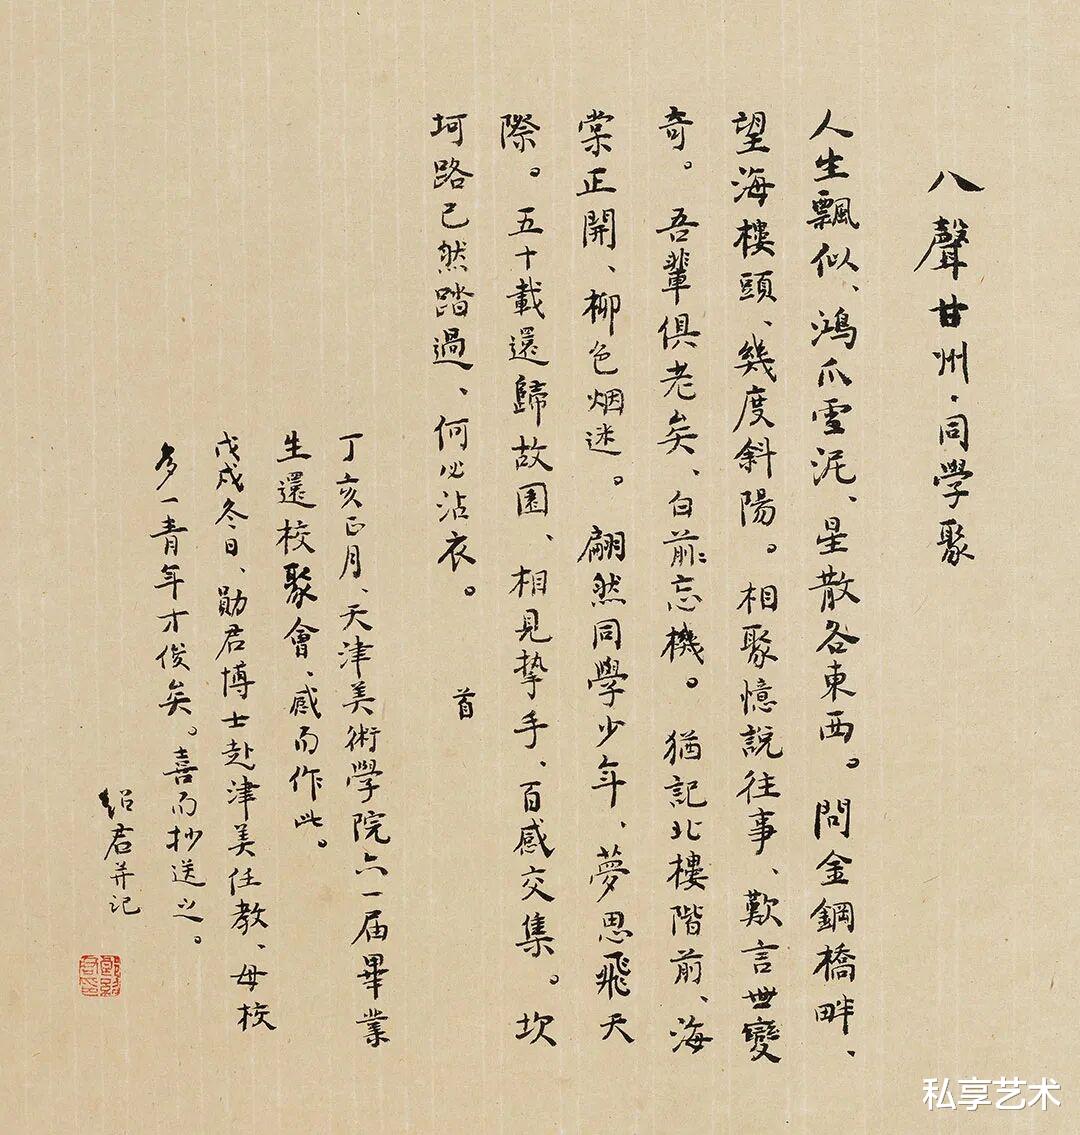 八聲甘州·同學聚
人生飄似、鴻爪雪泥、星散各東西。問金鋼橋畔、
望海樓頭、幾度斜陽。相聚憶說往事、歎言世變
奇。吾輩俱老矣、白首忘機。猶記北樓階前、海
棠正開、柳色烟迷。翩然同學少年、夢思飛天
際。五十載還歸故園、相見摯手、百感交集。坎
坷路已然踏過、何必沾衣。 首
丁亥正月、天津美術學院六一届畢業
生還校聚會、感而作此。
戊戌冬日、勛君博士赴津美任教、母校
多一青年才俊矣。喜而抄送之。
绍君并记
私享艺术